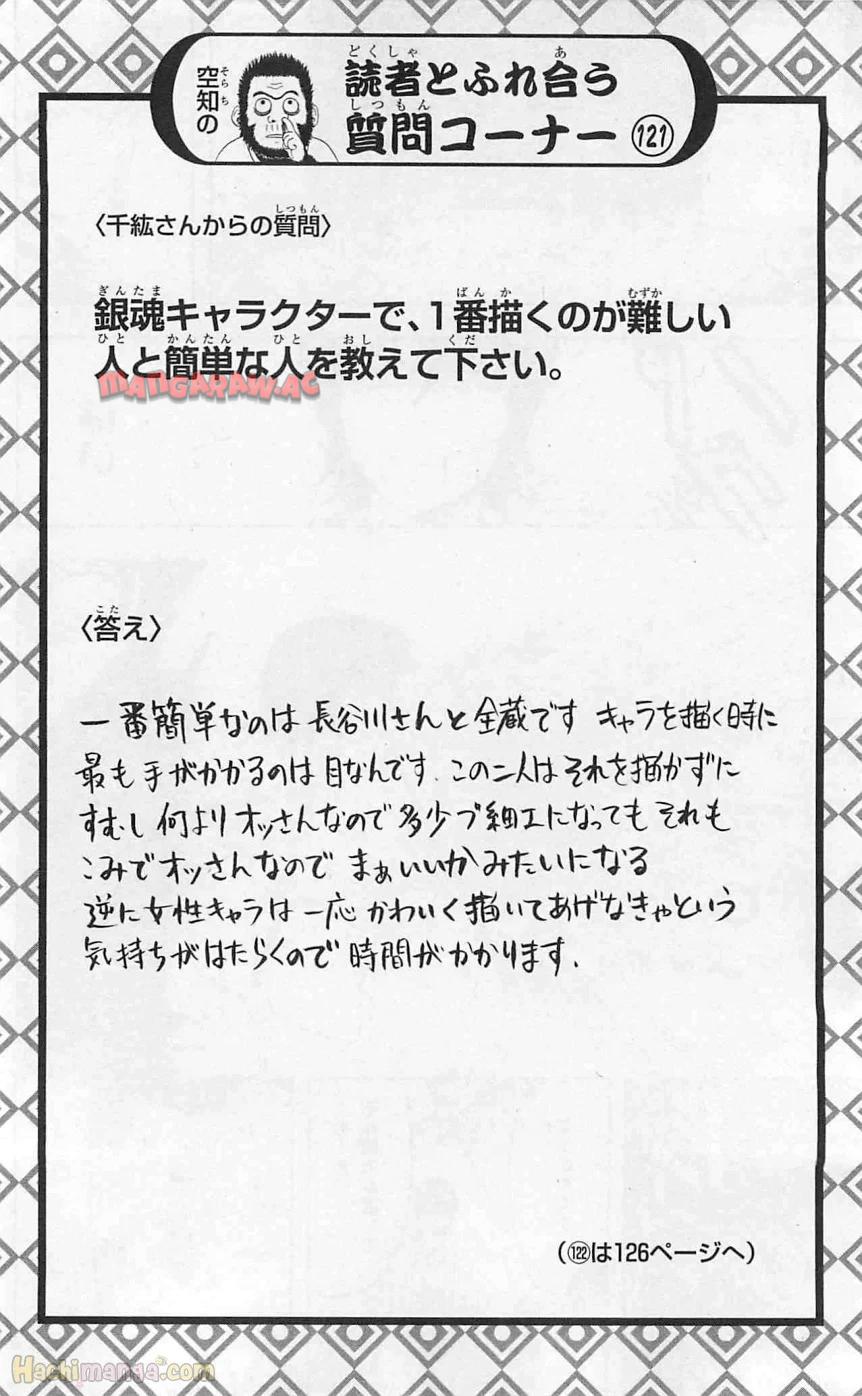 空知の
読者とふれ合う
質問コーナー 121
〈千紘さんからの質問〉
銀魂キャラクターで、1番描くのが難しい
人と簡単な人を教えて下さい。
MANGARAW.AC
〈答え〉
一番簡単なのは長谷川さんと全蔵です キャラを描く時に
最も手がかかるのは目なんです. この二人はそれを描かずに
すむし 何よりオッさんなので多少ブ細工になっても それも
こみでオッさんなので まぁいいか みたいになる
逆に女性キャラは一応かわいく描いてあげなきゃという
気持ちがはたらくので 時間がかかります.
(122は126ページへ)
Hachimanga.com